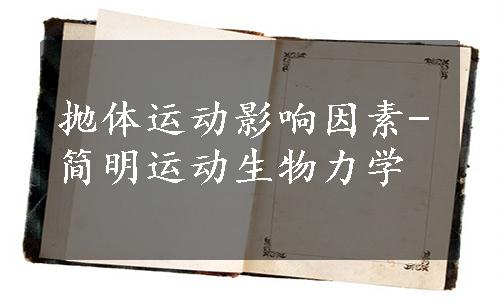 抛体运动影响因素-
简明运动生物力学